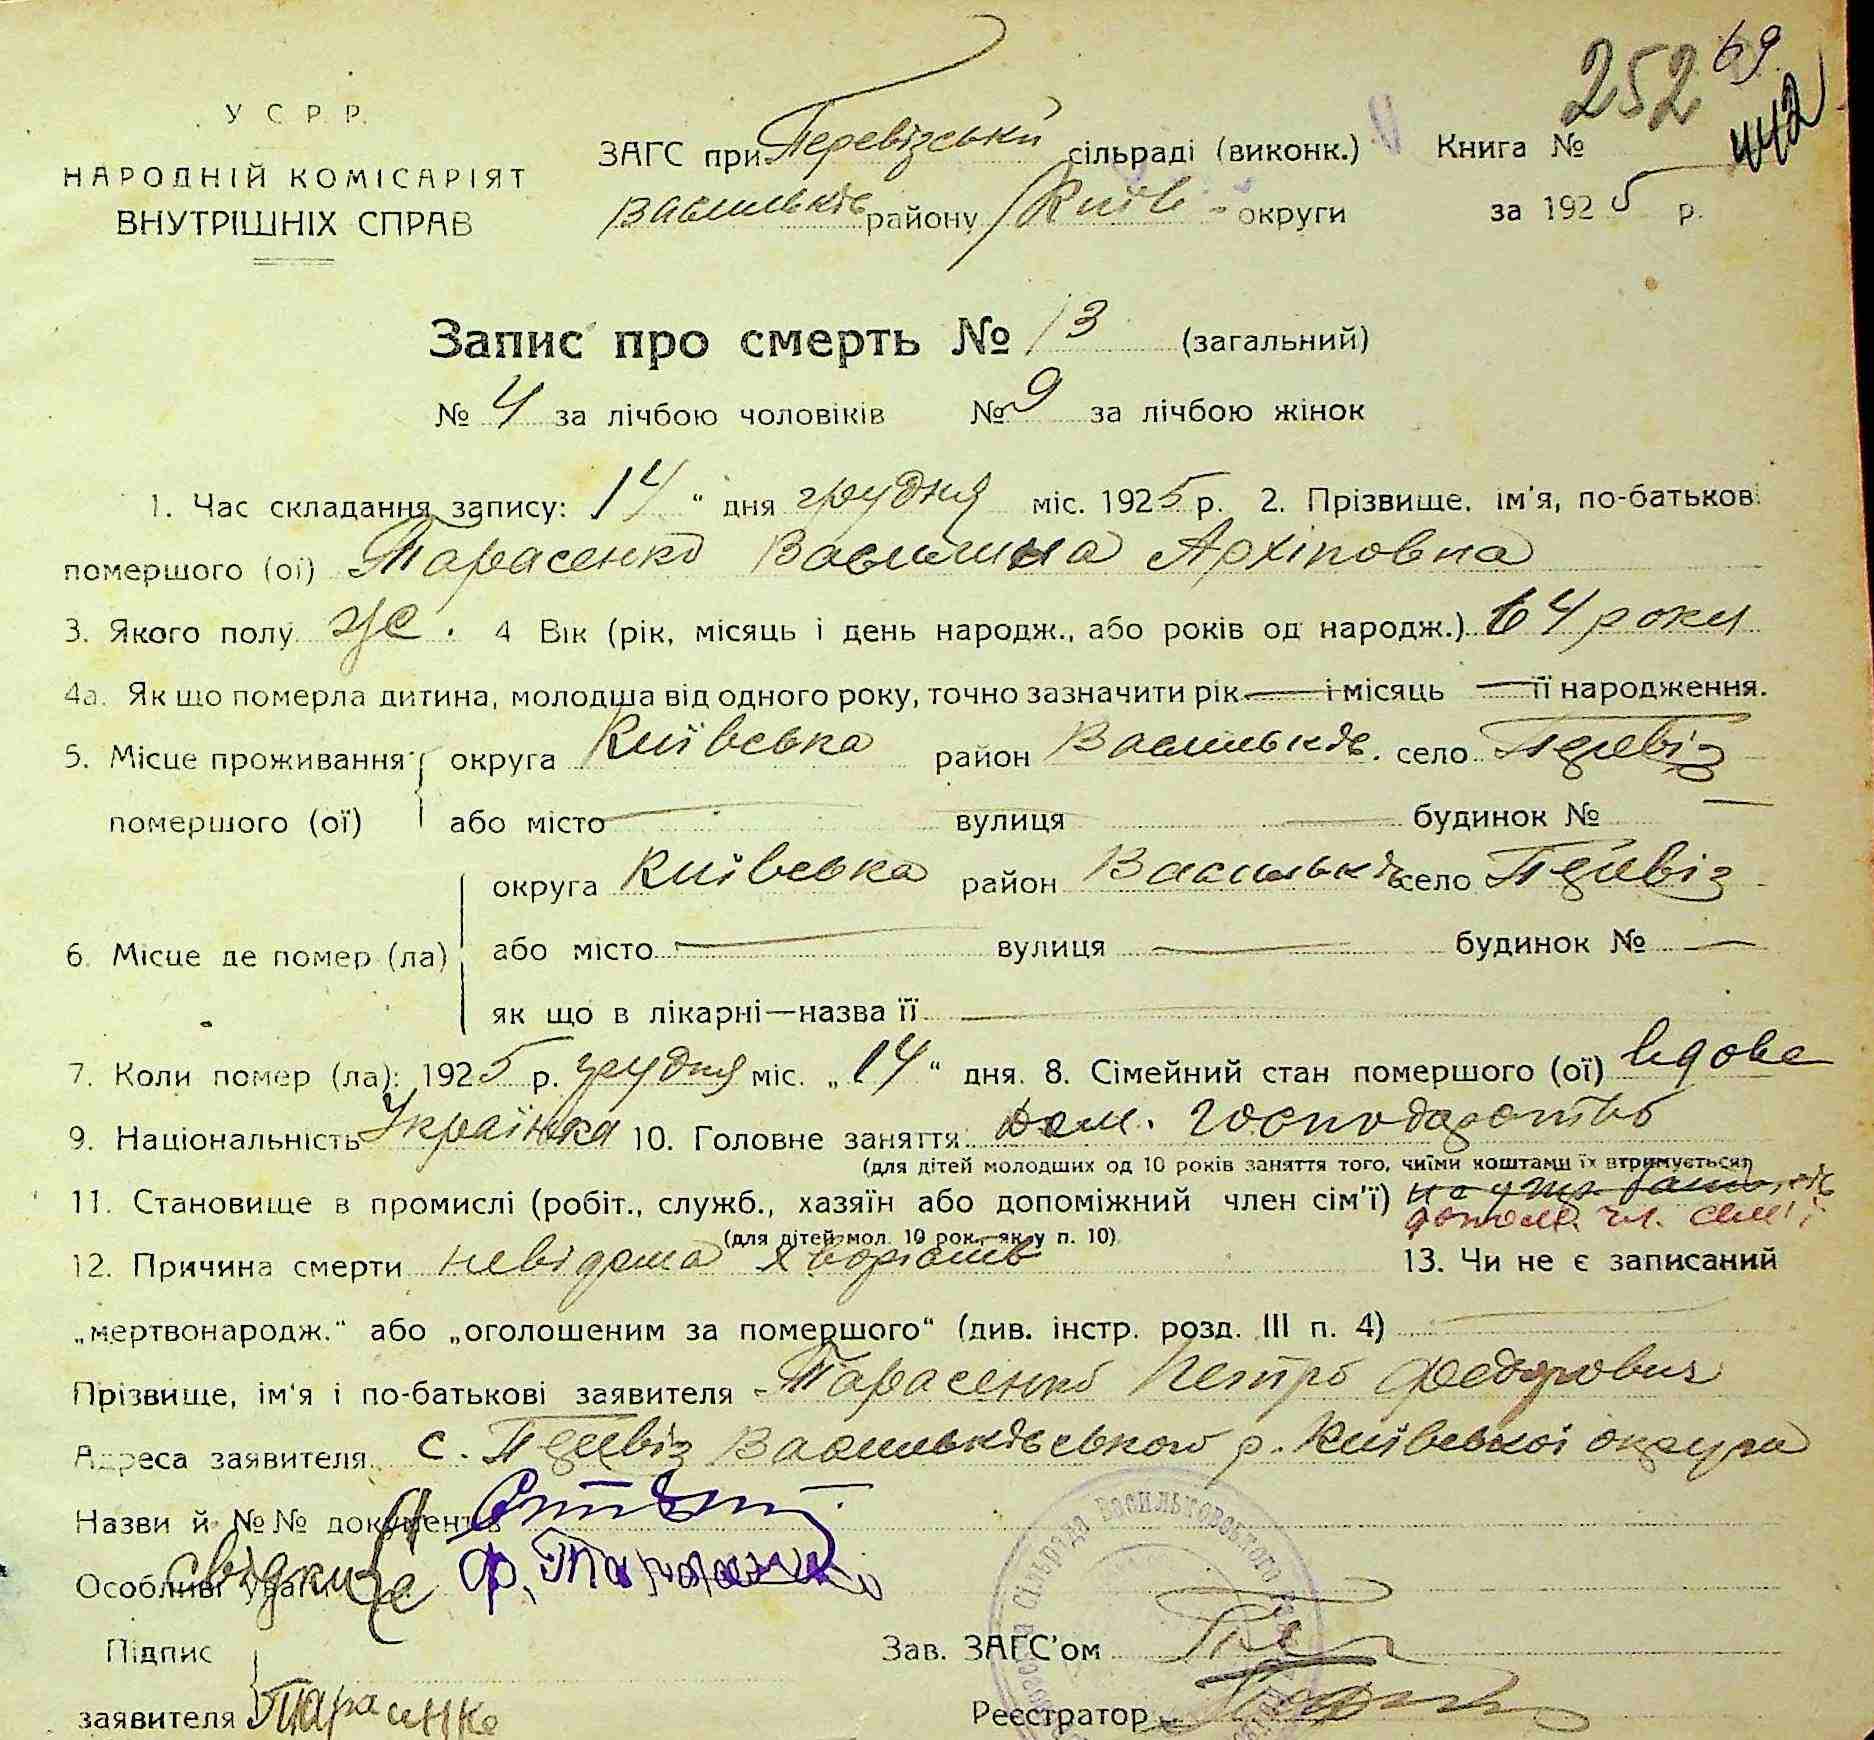 252 69
442
У С Р Р.
НАРОДНІЙ КОМІСАРІЯТ
ВНУТРІШНІХ СПРАВ
ЗАГС при Перевізській сільраді (виконк.) Книга №
Васильків району Київ - округи за 1925 р.
Запис про смерть № 13 (загальний)
№ 4 за лічбою чоловіків № 9 за лічбою жінок
1. Час складання запису: 14 " дня грудня міс. 1925 р. 2. Прізвище, ім'я, по-батьков
помершого (ої) Тарасенко Василина Архіповна
3. Якого полу же. 4 Вік (рік, місяць і день народж., або років од народж.) 64 роки
4а. Як що померла дитина, молодша від одного року, точно зазначити рік — і місяць — її народження.
5. Місце проживання округа Київська район Васильків. село Перевіз
помершого (ої) або місто — вулиця — будинок № —
округа Київська район Васильків село Перевіз
6. Місце де помер (ла) або місто — вулиця — будинок № —
як що в лікарні—назва її —
7. Коли помер (ла): 1925 р. грудня міс. „14" дня. 8. Сімейний стан помершого (ої) вдова
9. Національність Українка 10. Головне заняття: дом. господарство
(для дітей молодших од 10 років заняття того, чиїми коштами їх втримується)
11. Становище в промислі (робіт., служб., хазяїн або допоміжний член сім'ї)
допом. чл. сім'ї
(для дітей мол. 10 рок., як у п. 10).
12. Причина смерти невідома хворість 13. Чи не є записаний
„мертвонародж." або „оголошеним за помершого" (див. інстр. розд. III п. 4) —
Прізвище, ім'я і по-батькові заявителя Тарасенко Петро Федорович
Адреса заявителя с. Перевіз Васильківського р. Київської округи
Назви й №№ документів
Особливі уваги
Підпис
Зав. ЗАГС'ом
заявителя
Реєстратор